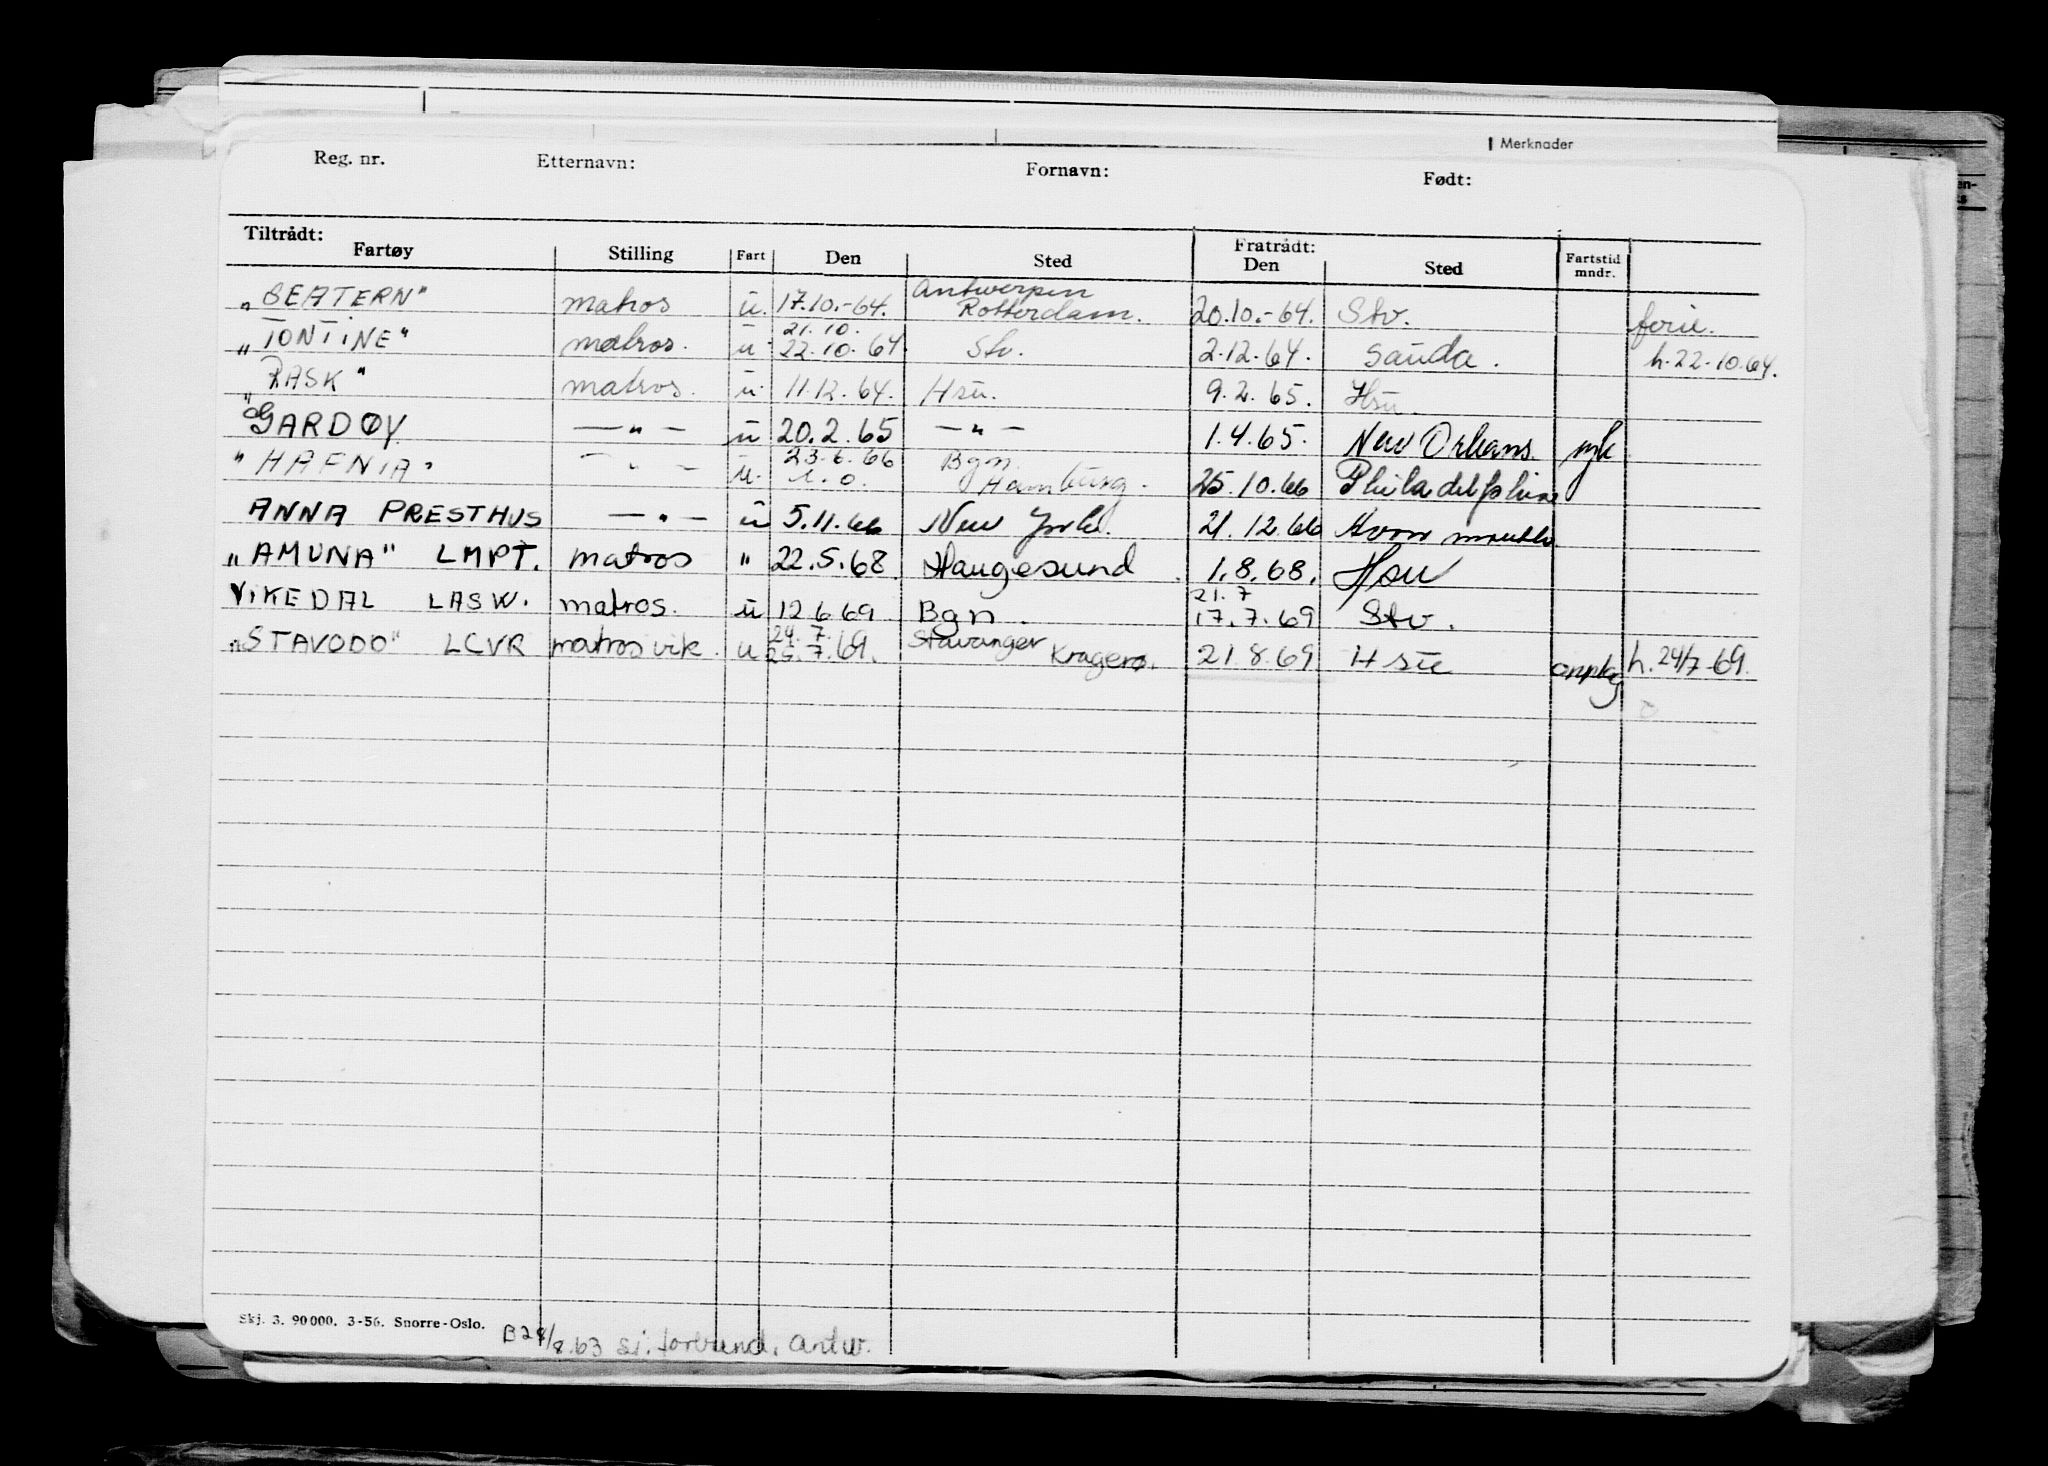 Merknader
Reg. nr. Etternavn: Fornavn: Født:
Tiltrådt: Fratrådt:
Fartøy Stilling Fart Den Sted Den Sted Fartstid mndr.
Antwerpen
„BEATERN" matros u. 17.10.-64. Rotterdam. 20.10.-64. Stv. ferie.
21.10.
„TONTINE" matros. u 22.10.64 Stv. 2.12.64. Sauda. h.22.10.64.
„RASK" matros. u. 11.12.64. Hsu. 9.2.65. Hsu.
GARDØY —"— u 20.2.65 —"— 1.4.65. New Orleans
23.6.66 Bgn.
"HAFNIA" —"— u. 1.0. Hamburg. 25.10.66 Philadelphia
ANNA PRESTHUS —"— u 5.11.66 New York. 21.12.66 Avonmouth
„AMUNA" LMPT. matros " 22.5.68 Haugesund 1.8.68. Hsu
21.7
VIKEDAL LASW. matros. u 12.6.69 Bgn. 17.7.69 Stv.
24.7. Stavanger
„STAVODO" LCVR matros vik. u 25.7.69. Kragerø. 21.8.69 Hsu h.24/7-69.
Skj. 3. 90 000. 3-56. Snorre-Oslo.
B28/8.63 si. forbund. Antw.